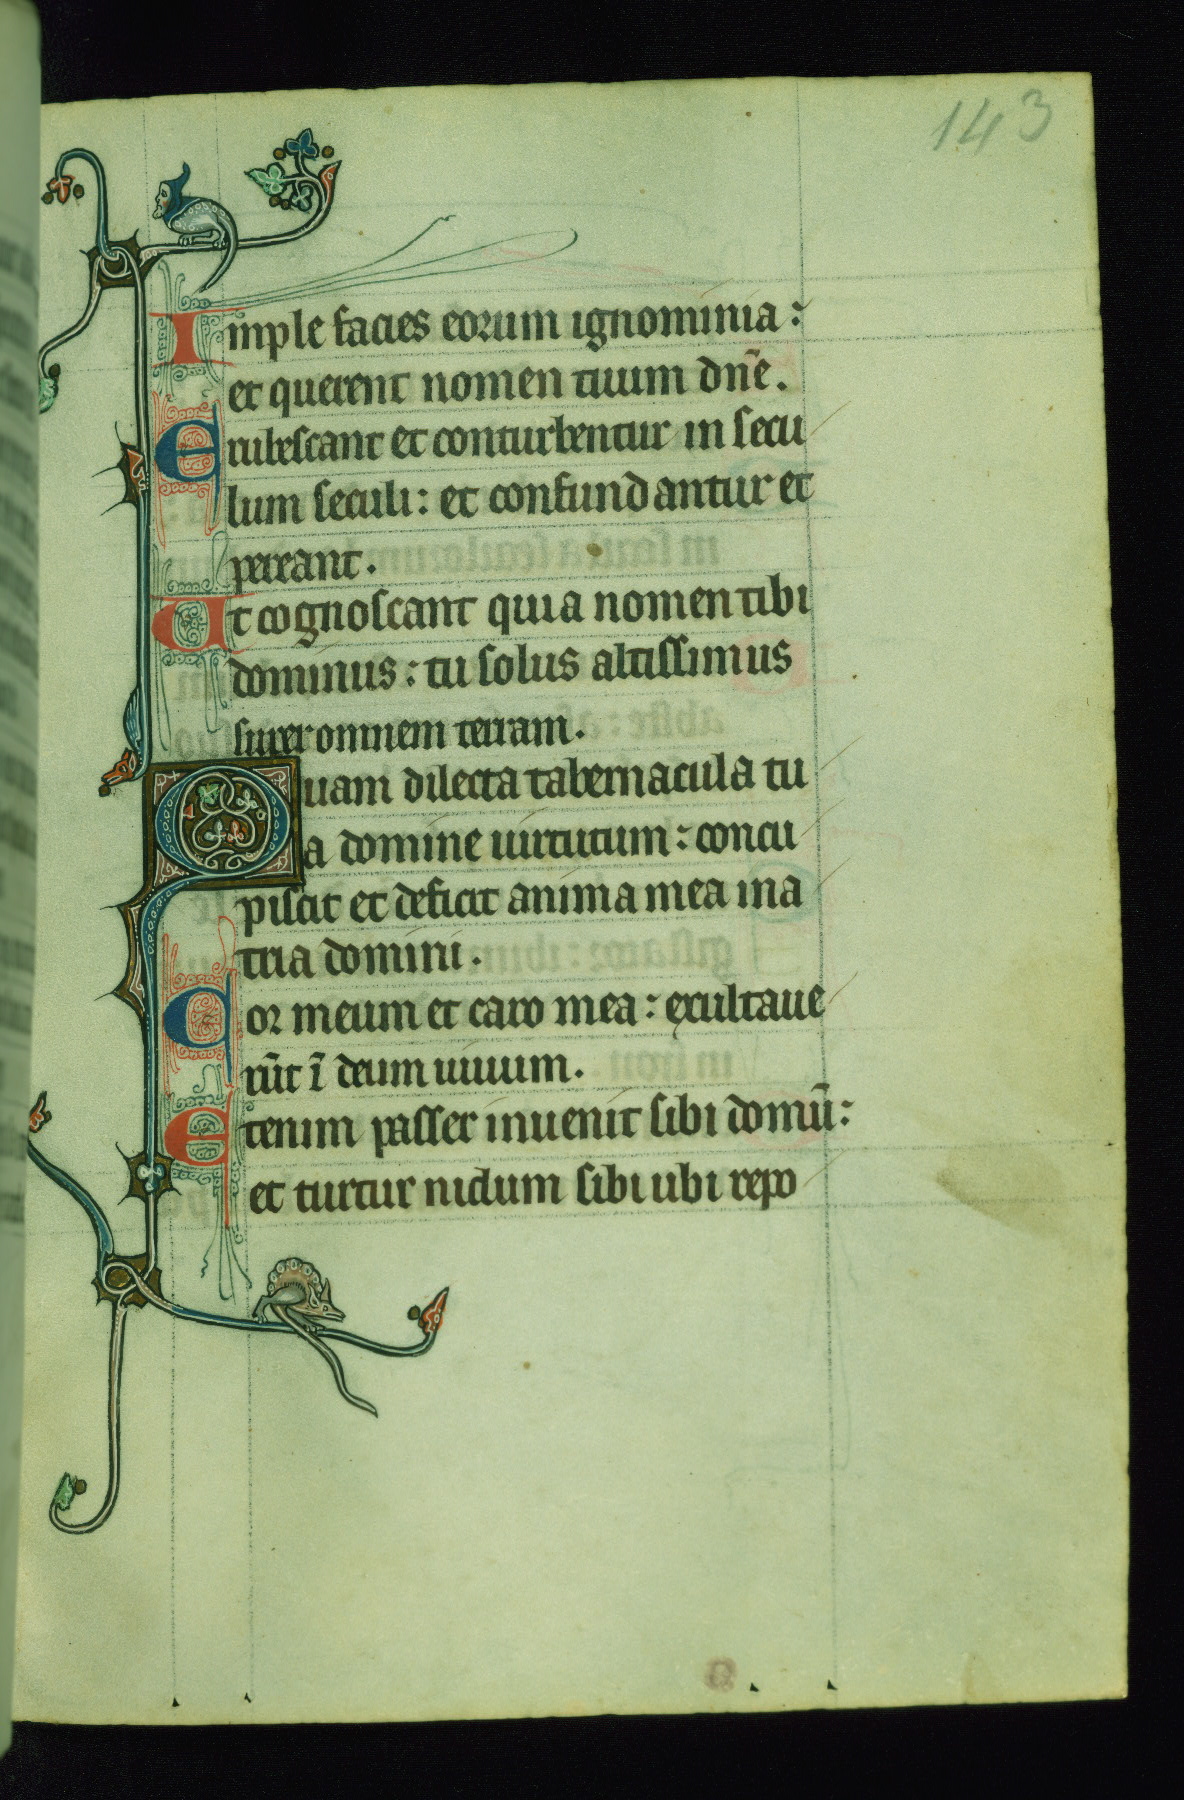 143
Imple facies eorum ignominia:
et querent nomen tuum dn̄e.
Erubescant et conturbentur in secu
lum seculi: et confundantur et
pereant.
Et cognoscant quia nomen tibi
dominus: tu solus altissimus
super omnem terram.
Quam dilecta tabernacula tu
a domine uirtutum: concu
piscit et deficit anima mea in a
tria domini.
Cor meum et caro mea: exultaue
rūt ī deum uiuum.
Etenim passer inuenit sibi domū:
et turtur nidum sibi ubi repo